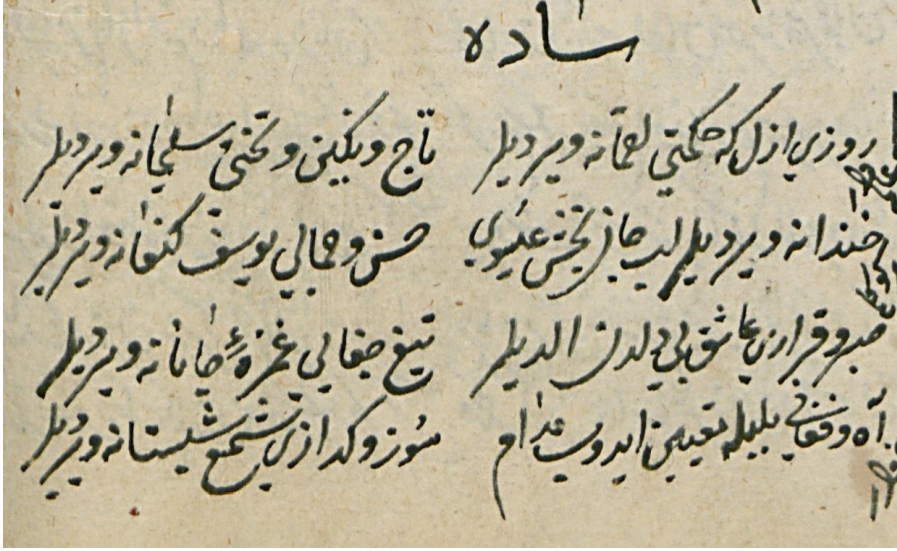 ساده
روزی ازل که حکمتی لقمانه ویردیلر تاج ونگین وتختی سلیمانه ویردیلر
خندانه ویردیلر لب جان بخش عیسوی حسن وجمالی یوسف کنعانه ویردیلر
صبر وقراری عاشق بی دلدن الدیلر تیغ جفایی غمزهٔ جانانه ویردیلر
آه وفغانی بلبله تعیین ایدوب مدام سوز وگدازی شمع شبستانه ویردیلر